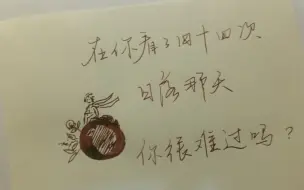 在你看了四十四次
日落那天
你很难过吗？